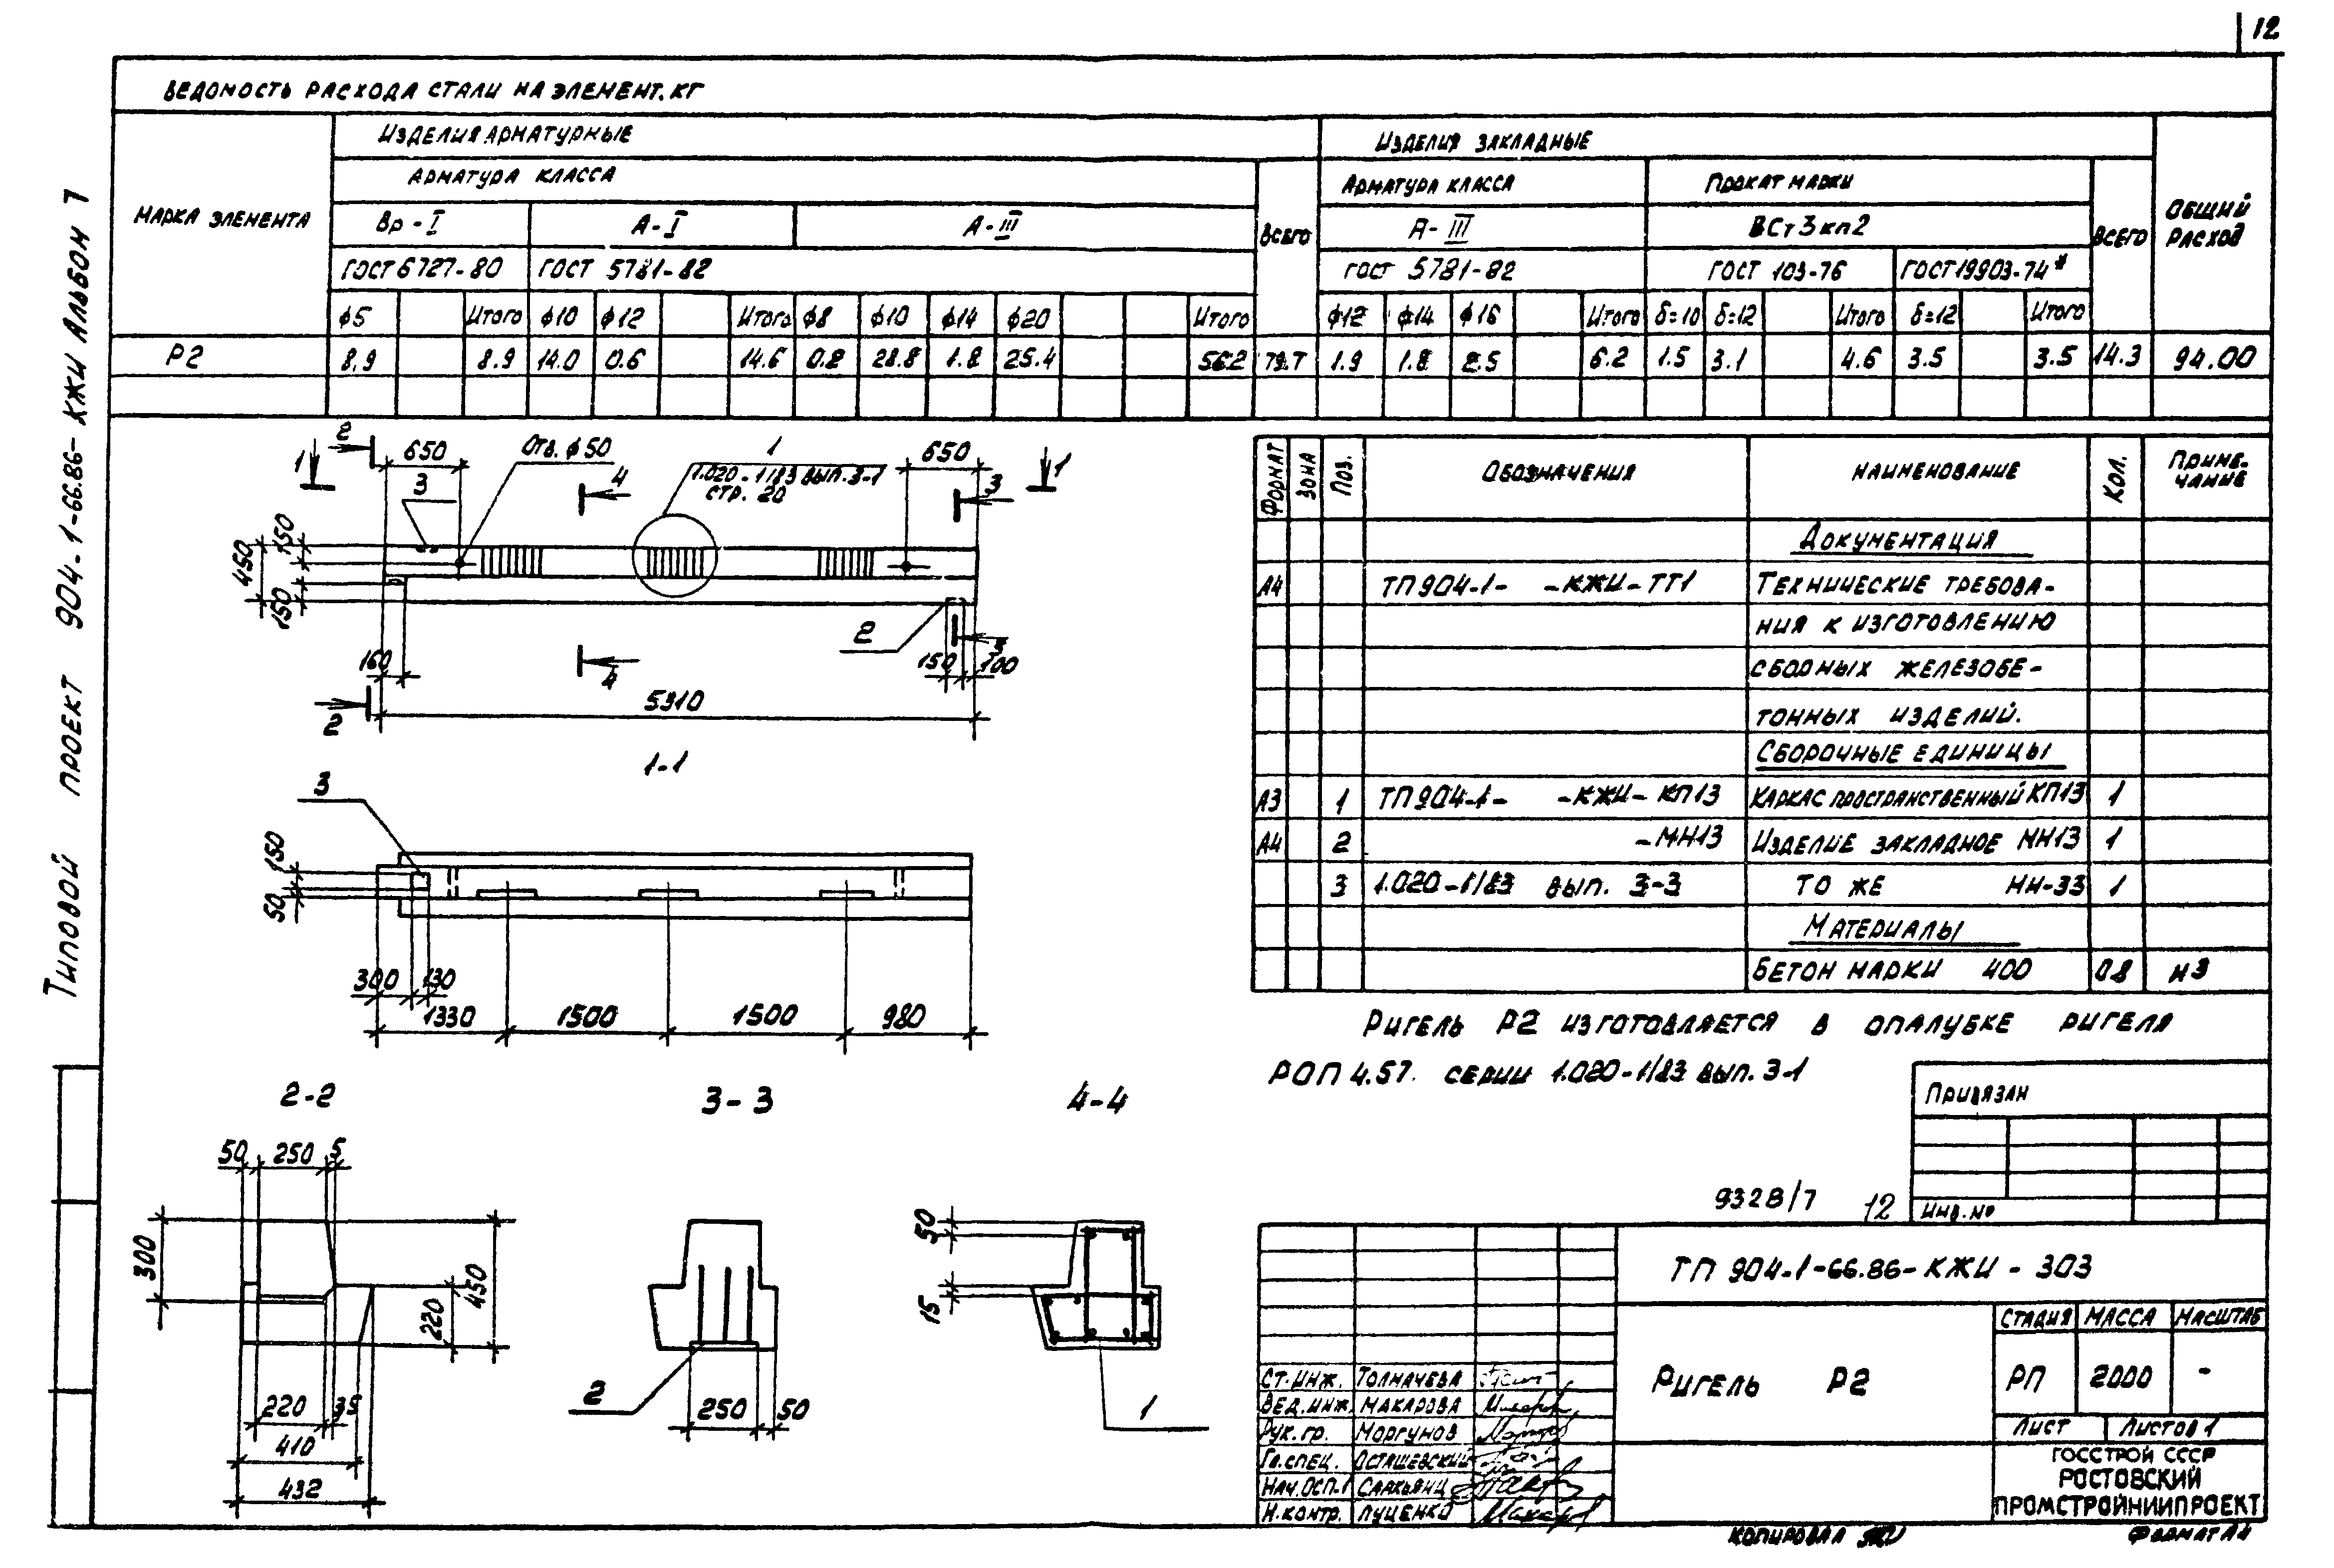 12
Ведомость расхода стали на элемент, кг
Марка элемента
Изделия арматурные
Изделия закладные
Общий расход
Арматура класса
Всего
Арматура класса
Прокат марки
Всего
Вр-I
А-I
А-III
А-III
ВСт3кп2
ГОСТ 6727-80
ГОСТ 5781-82
ГОСТ 5781-82
ГОСТ 103-76
ГОСТ 19903-74*
ф5 Итого ф10 ф12 Итого ф8 ф10 ф14 ф20 Итого ф12 ф14 ф16 Итого δ=10 δ=12 Итого δ=12 Итого
Р2 8,9 8.9 14.0 0.6 14.6 0.2 28.8 1.8 25.4 56.2 79.7 1.9 1.8 2.5 6.2 1.5 3.1 4.6 3.5 3.5 14.3 94.00
Типовой проект 904-1-66.86-КЖИ Альбом 7
2 650 Отв. ф50 1 650
1 1
1.020-1/83 вып.3-1
стр. 20
3 4 3
150
450
150
2
160 4 150 3 100
5310
2
1-1
3
150
50
300 130
1330 1500 1500 980
2-2 3-3 4-4
50 250 5
300
450
220
220 35
410
432
2
250 50
50
15
1
Формат Зона Поз. Обозначения Наименование Кол. Примечание
Документация
А4 ТП904-1- -КЖИ-ТТ1 Технические требова-
ния к изготовлению
сборных железобе-
тонных изделий.
Сборочные единицы
А3 1 ТП904-1- -КЖИ-КП13 Каркас пространственный КП13 1
А4 2 -МН13 Изделие закладное МН13 1
3 1.020-1/83 вып. 3-3 То же МН-33 1
Материалы
Бетон марки 400 0.8 м3
Ригель Р2 изготовляется в опалубке ригеля
РОП 4.57. серии 1.020-1/83 вып. 3-1
Привязан
Инв. №
9328/7 12
ТП 904-1-66.86-КЖИ-303
Ригель Р2
Стадия Масса Масштаб
РП 2000 -
Лист Листов 1
ГОССТРОЙ СССР
РОСТОВСКИЙ
ПРОМСТРОЙНИИПРОЕКТ
Ст.инж. Толмачева
Вед.инж. Макарова
Рук.гр. Моргунов
Гл.спец. Осташевский
Нач.ОСП-1 Саркьянц
Н.контр. Луценко
Копировал
Формат А4